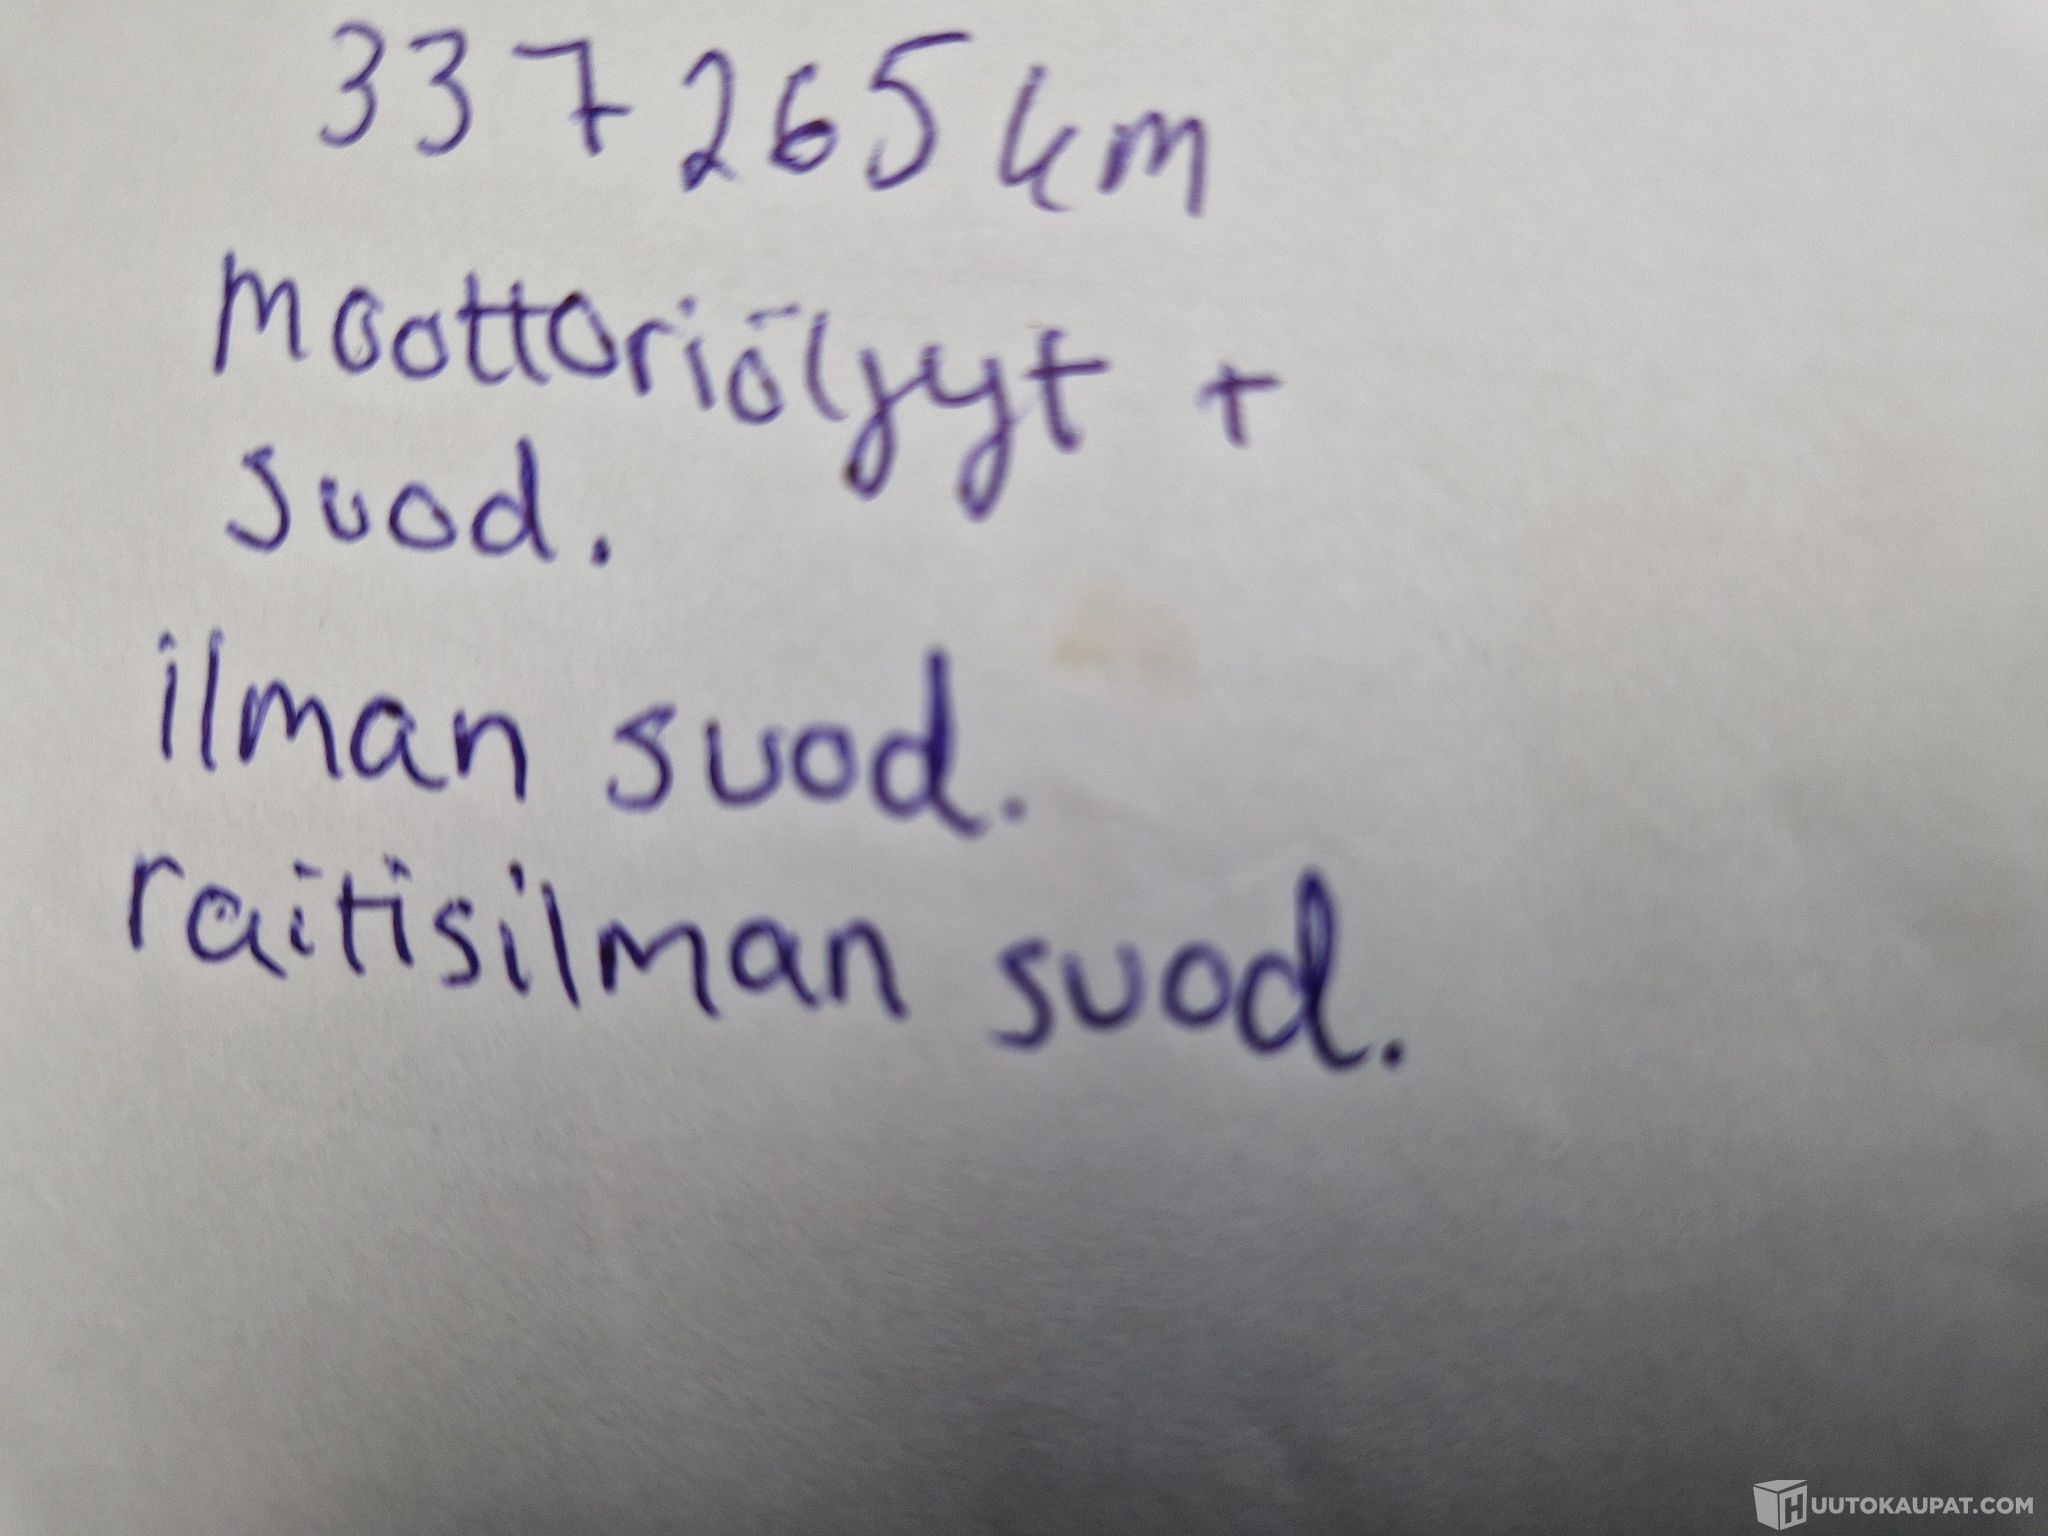 337265 km
Moottoriöljyt +
suod.
ilman suod.
raitisilman suod.
HUUTOKAUPAT.COM